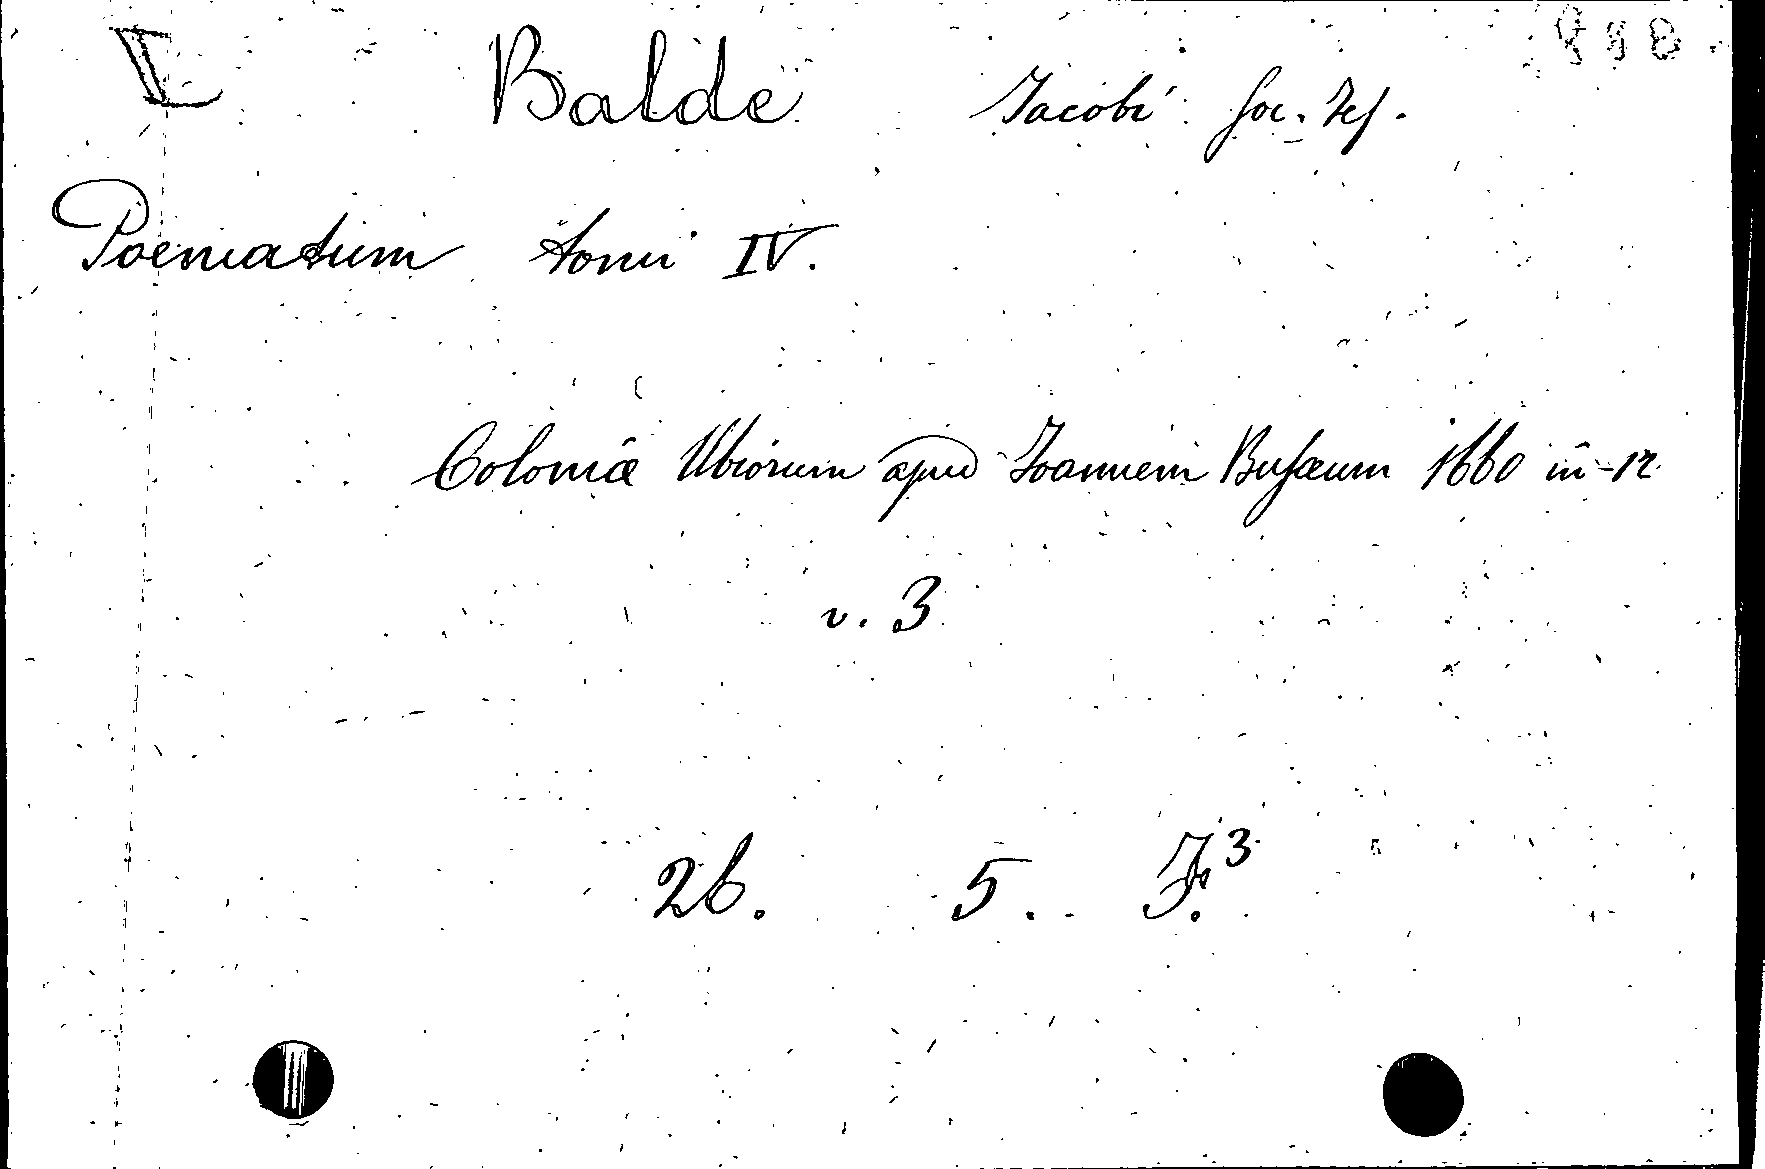 Balde Jacobi Soc. Jes.
Poematum tomi IV.
Coloniæ Ubiorum apud Joannem Busæum 1660 in-12
v. 3
26. 5. F.³